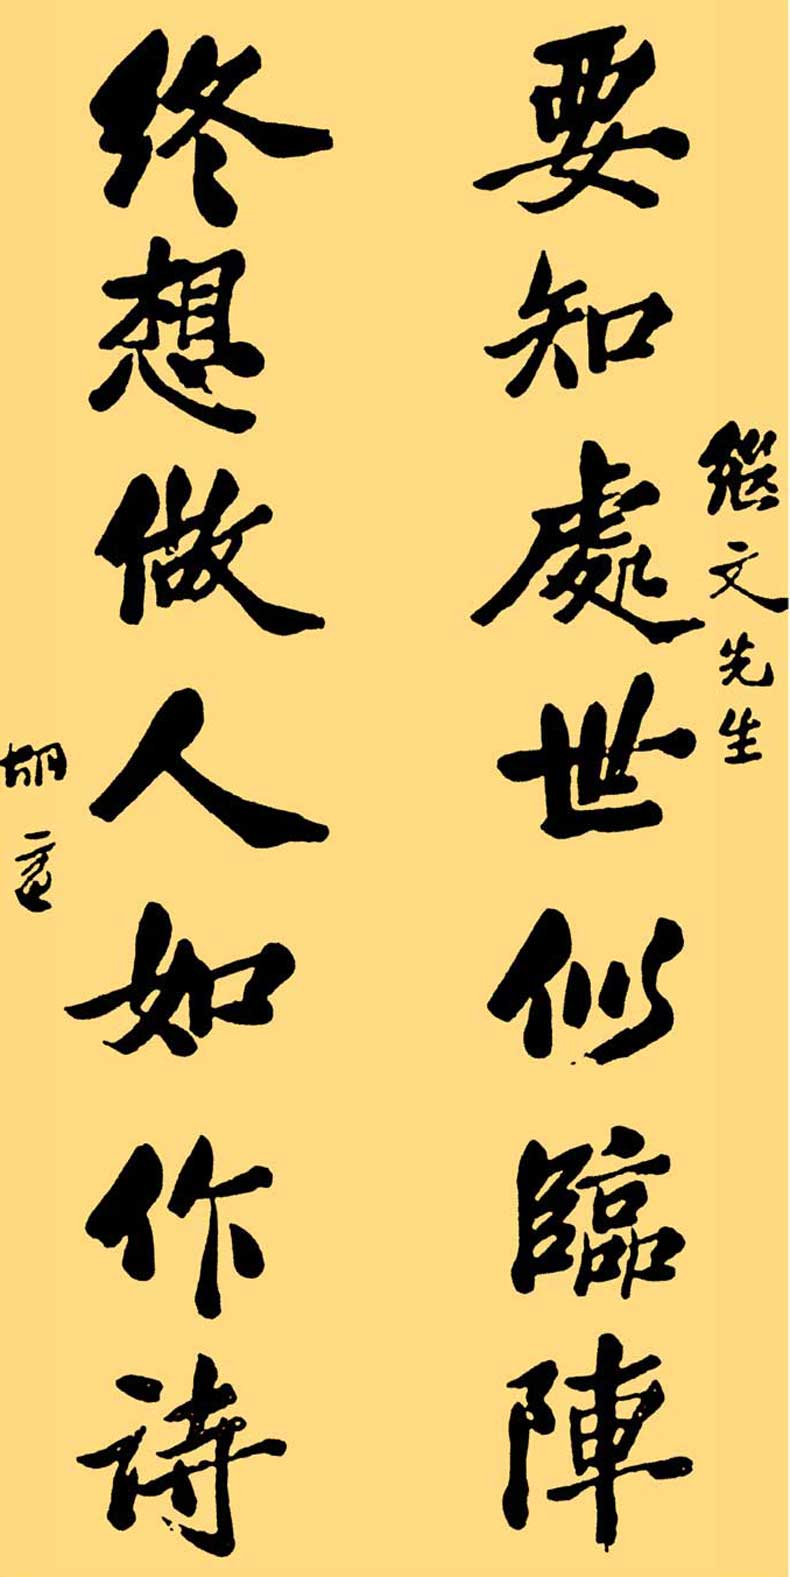 繼文先生
要知處世似臨陣
終想做人如作詩
胡適